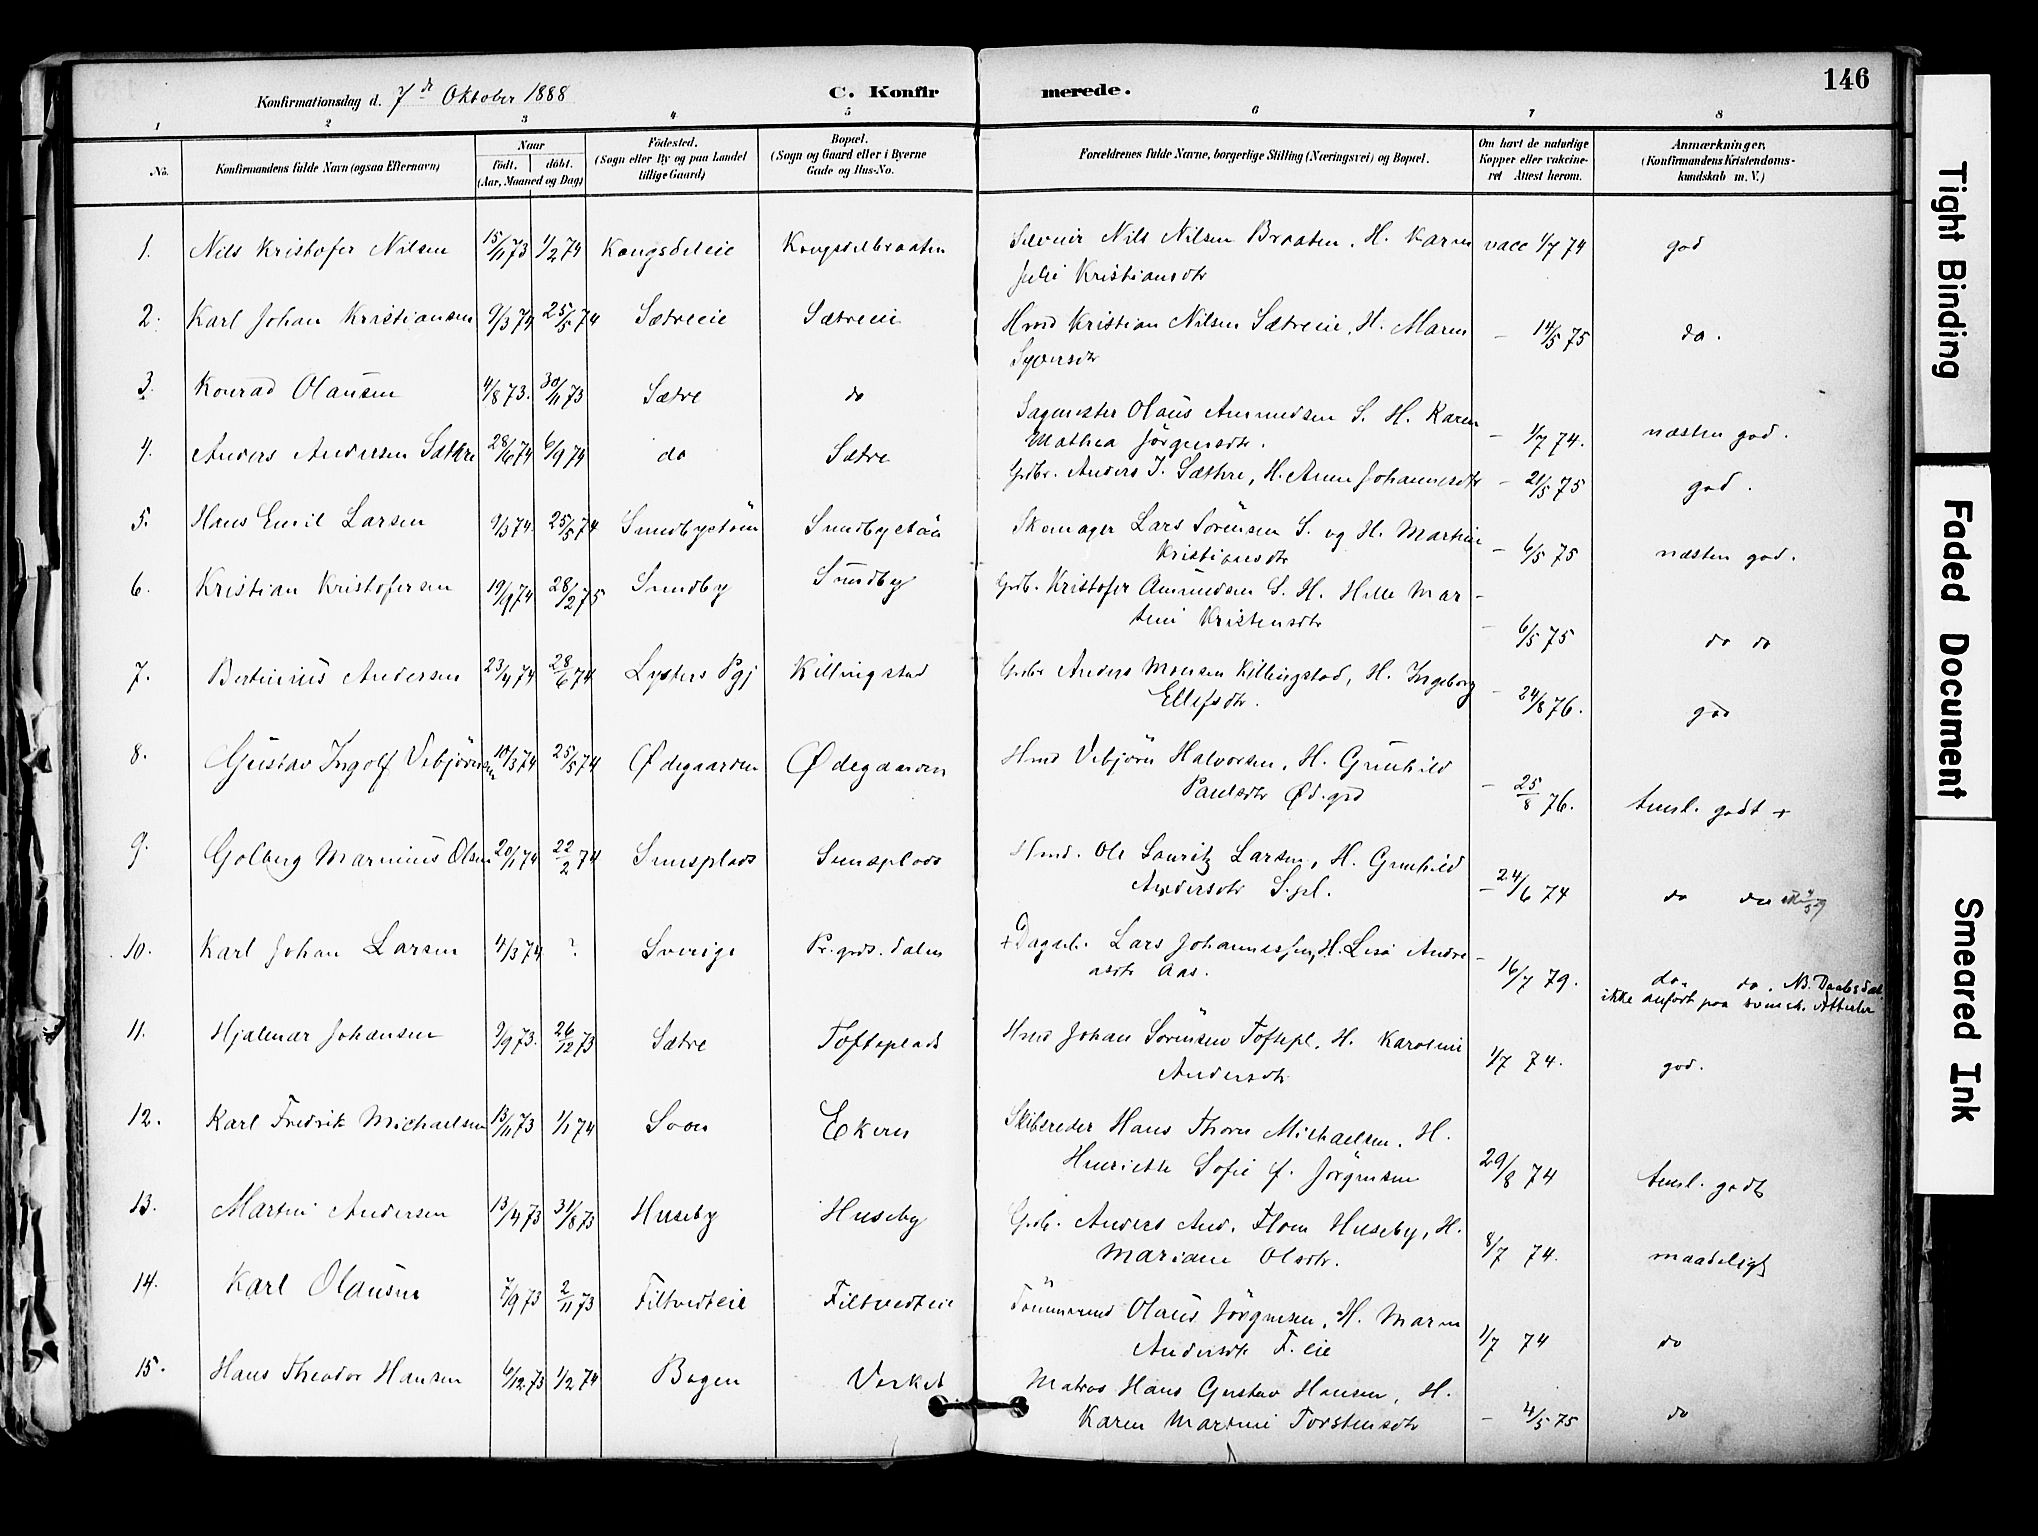 146
Konfirmationsdag d. 7de Oktober 1888
C. Konfirmerede.
1 2 3 4 5 6 7 8
No. Konfirmandens fulde Navn (ogsaa Efternavn) Naar født. døbt. (Aar, Maaned og Dag) Födested. (Sogn eller By og paa Landet tillige Gaard) Bopæl. (Sogn og Gaard eller i Byerne Gade og Hus-No. Forældrenes fulde Navne, borgerlige Stilling (Næringsvei) og Bopæl. Om havt de naturlige Kopper eller vaccineret Attest herom. Anmærkninger, (Konfirmandens Kristendomskundskab m. V.)
1. Nils Kristofer Nilsen 15/11 73 1/2 74 Kongsdeleie Kongsdelbraaten Nils Nilsen Braaten, H. Karen vacc 1/7 74 god
Julie Kristiansdtr
2. Karl Johan Kristiansen 9/3 74 25/5 74 Sætreeie Sætreeie Hmd Kristian Nilsen Sætreeie, H. Maren – 14/5 75 do.
Syversdtr
3. Konrad Olausen 4/8 73. 30/11 73 Sætre do Sagmester Olaus Amundsen S. H. Karen
Mathea Jörgensdtr. – 1/7 74. næsten god.
4. Anders Andersen Sæthre 28/6 74 6/9 74 do Sætre Grdbr. Anders J. Sæthre, H. Anne Johannesdtr – 21/5 75 god.
5. Hans Emil Larsen 9/3 74. 25/5 74 Sundbyetöen Sundbyetöen Skomager Lars Sörensen S. og H. Martine
Kristiansdtr – 6/5 75 næsten god.
6. Kristian Kristofersen 19/9 74 28/2 75 Sundby Sundby Grdb. Kristofer Amundsen S. H. Helle Mar-
tine Kristensdtr – 6/5 75 do do
7. Bertinius Andersen 23/4 74 28/6 74 Lysters Pgj Killingstad Grdbr Anders Monsen Killingstad, H. Ingeborg
Ellefsdtr. – 24/8 76. god
8. Gustav Ingolf Vebjörnsen 10/3 74 25/5 74 Ødegaarden Ødegaarden Hmd Vebjörn Halvorsen, H. Gunhild
Paulsdtr Ød.grd – 25/8 76. teml. godt +
9. Golberg Marinius Olsen 20/1 74 22/2 74 Sunsplads Sunsplads Hmd. Ole Lauritz Larsen, H. Gunhild
Andersdtr S.pl. – 24/6 74 do do
10. Karl Johan Larsen 4/3 74 ? Sverige Pr.grds. dalen + Dagarb. Lars Johannesen, H. Lisa Andre-
asdtr Aas. 16/7 79. do. do. NB.
ikke anført paa svensk. Attester
11. Hjalmar Johansen 9/9 73. 26/12 73 Sætre Tofteplads Hmd Johan Sörensen Toftepl. H. Karoline
Andersdtr 1/7 74. god.
12. Karl Fredrik Michaelsen 13/11 73 1/1 74 Svoen Ekeren Skibsreder Hans Thorn Michaelsen. H.
Henriette Sofie f. Jörgensen 29/8 74 temel. godt
13. Martin Andersen 13/4 73 31/8 73 Huseby Huseby Grdb. Anders And. Flom Huseby, H.
Mariane Olsdtr. 8/7 74. maadeligt
14. Karl Olausen 7/9 73 2/11 73 Filtvedteie Filtvedteie Tömmermd Olaus Jörgensen, H. Maren
Andersdtr F. eie 1/7 74 do
15. Hans Theodor Hansen 6/12 73 1/2 74 Bogen Verket Matros Hans Gustav Hansen, H.
Karen Martine Torstensdtr – 4/5 75 do
Tight Binding
Faded Document
Smeared Ink